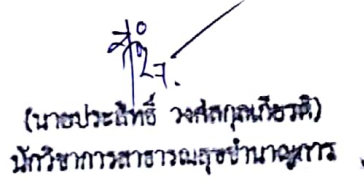 (นายประสิทธิ์ วงศ์สกุลเกียรติ)
นักวิชาการสาธารณสุขชำนาญการ